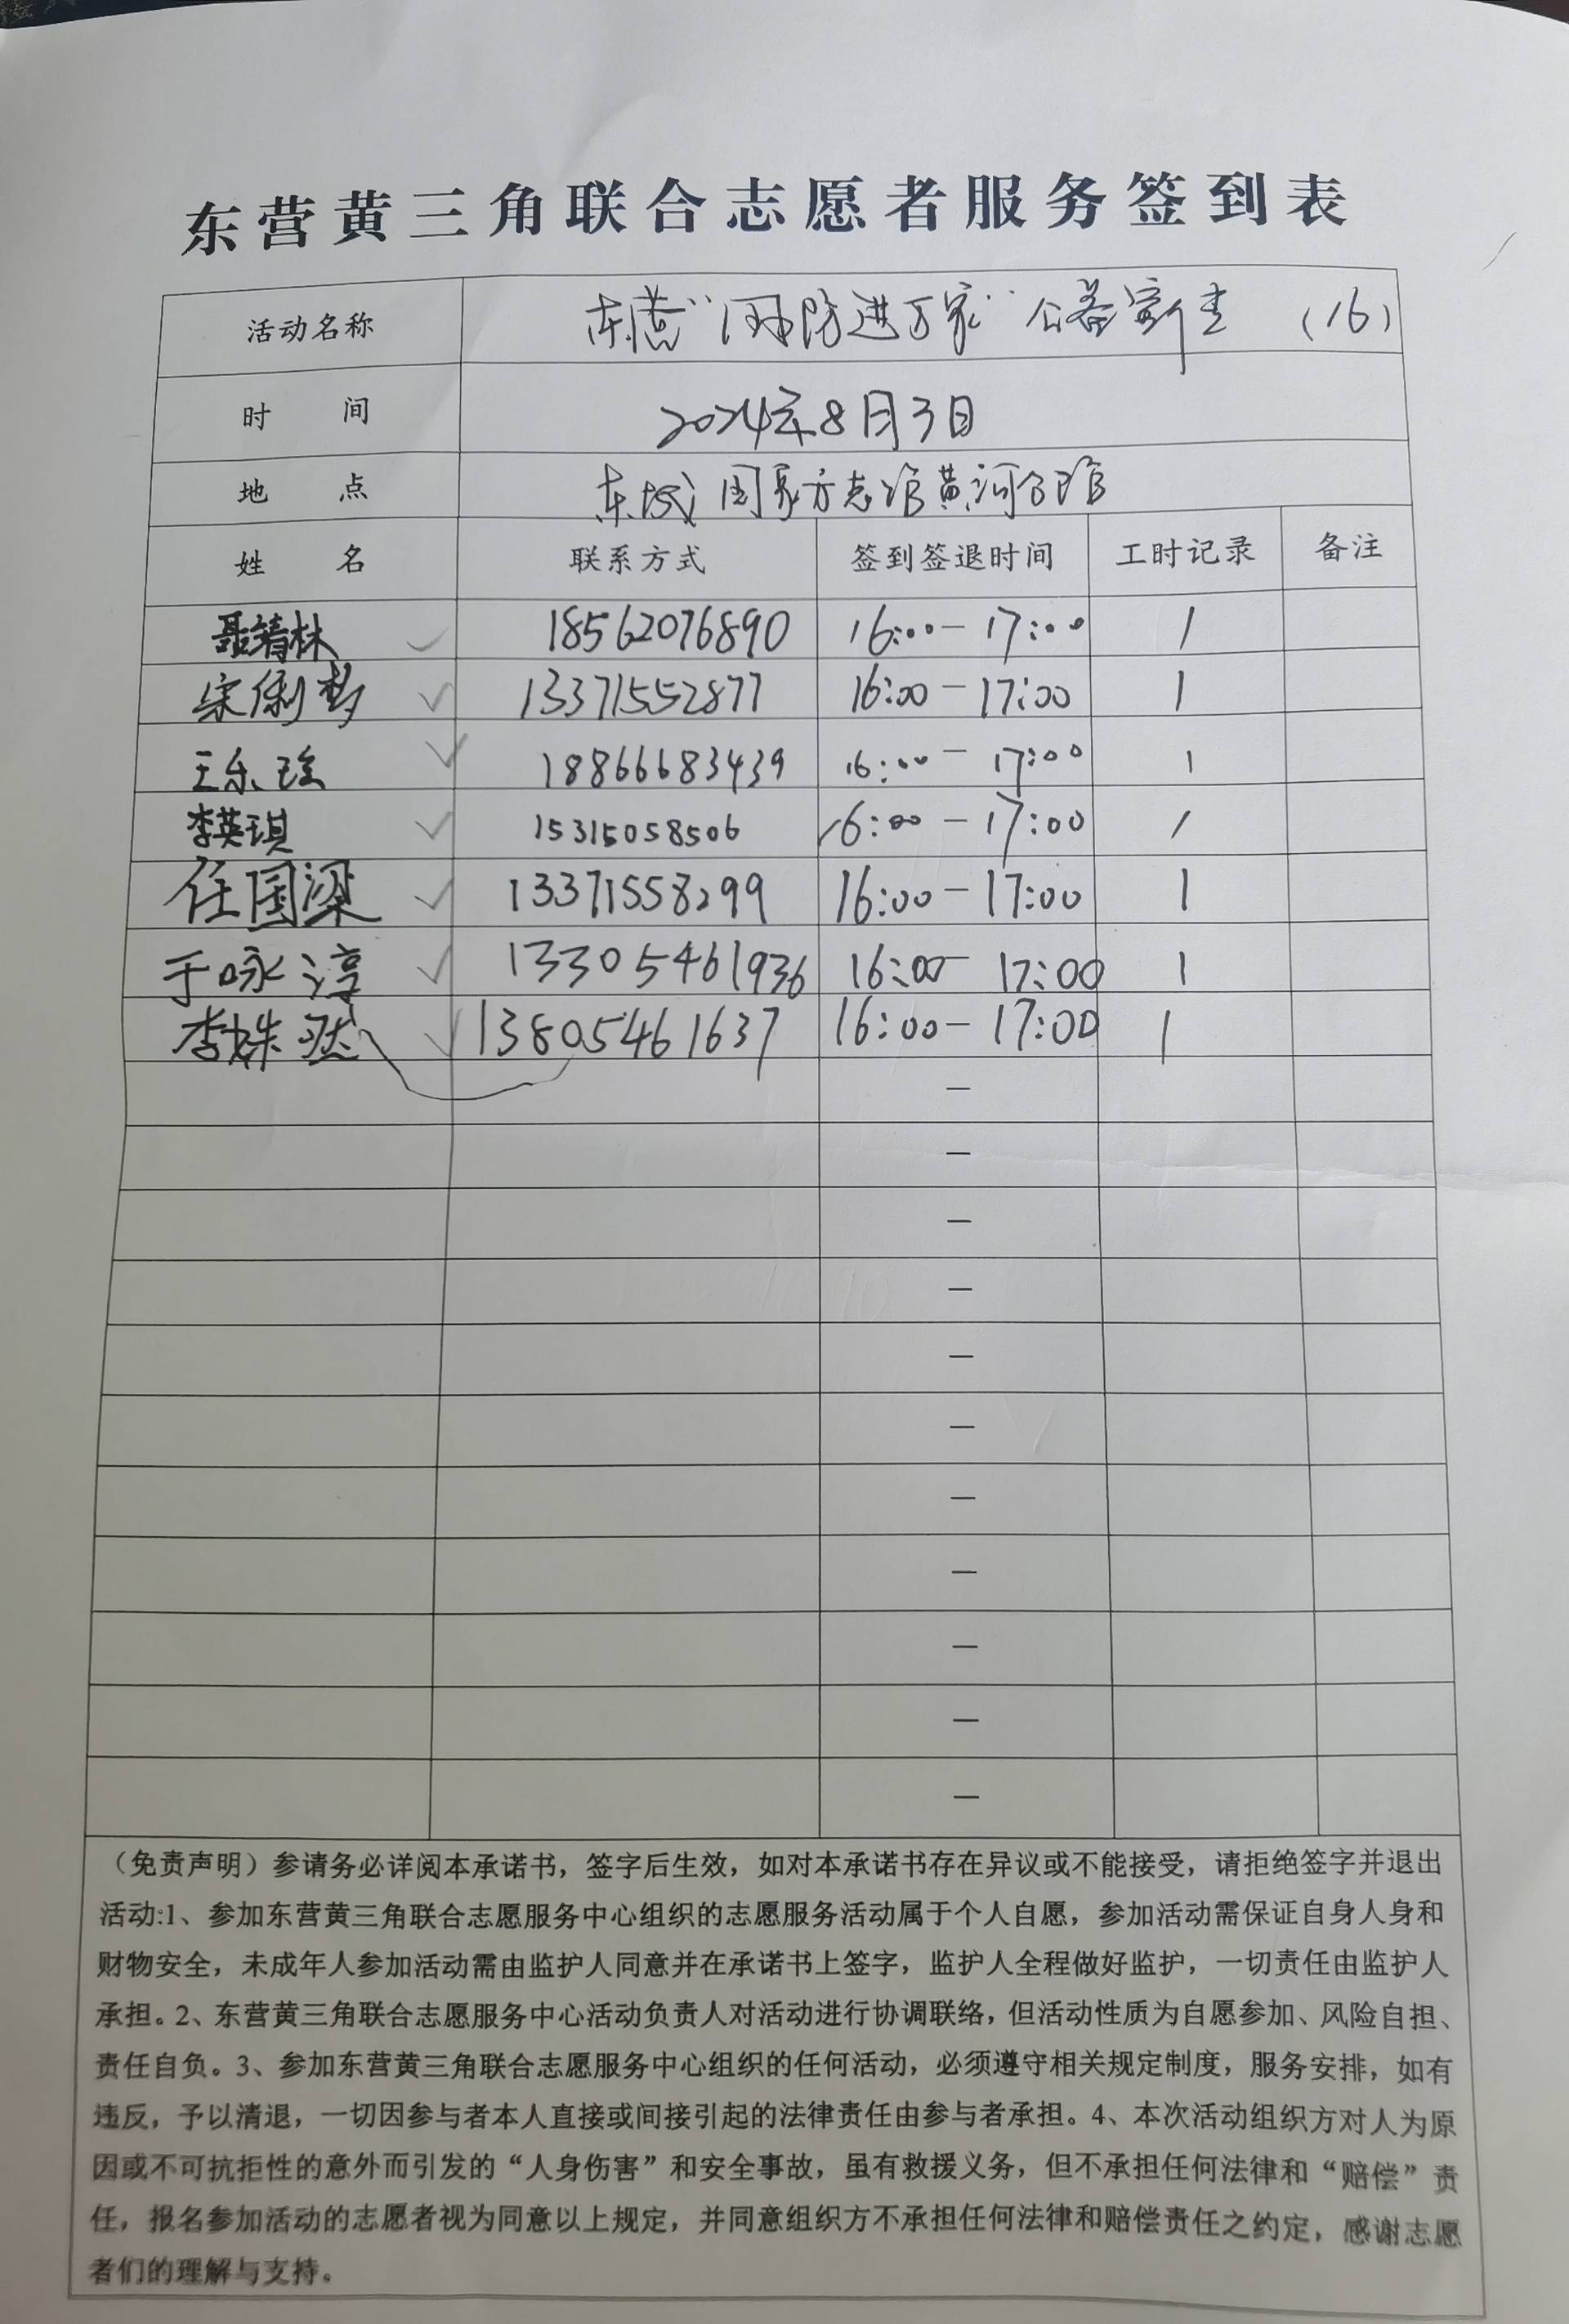 东营黄三角联合志愿者服务签到表
活动名称 东营“国防进万家”公益宣传 (16)
时 间 2024年8月3日
地 点 东城国家方志馆黄河分馆
姓 名 联系方式 签到签退时间 工时记录 备注
聂靖林 18562076890 16:00-17:00 1
宋俐梦 13371552877 16:00-17:00 1
王乐 18866683439 16:00-17:00 1
李英琪 15315058506 16:00-17:00 1
任国梁 13371558299 16:00-17:00 1
于咏淳 13305461936 16:00-17:00 1
李姝 13805461637 16:00-17:00 1
—
—
—
—
—
—
—
—
—
—
—
（免责声明）参请务必详阅本承诺书，签字后生效，如对本承诺书存在异议或不能接受，请拒绝签字并退出
活动:1、参加东营黄三角联合志愿服务中心组织的志愿服务活动属于个人自愿，参加活动需保证自身人身和
财物安全，未成年人参加活动需由监护人同意并在承诺书上签字，监护人全程做好监护，一切责任由监护人
承担。2、东营黄三角联合志愿服务中心活动负责人对活动进行协调联络，但活动性质为自愿参加、风险自担、
责任自负。3、参加东营黄三角联合志愿服务中心组织的任何活动，必须遵守相关规定制度，服务安排，如有
违反，予以清退，一切因参与者本人直接或间接引起的法律责任由参与者承担。4、本次活动组织方对人为原
因或不可抗拒性的意外而引发的“人身伤害”和安全事故，虽有救援义务，但不承担任何法律和“赔偿”责
任，报名参加活动的志愿者视为同意以上规定，并同意组织方不承担任何法律和赔偿责任之约定，感谢志愿
者们的理解与支持。